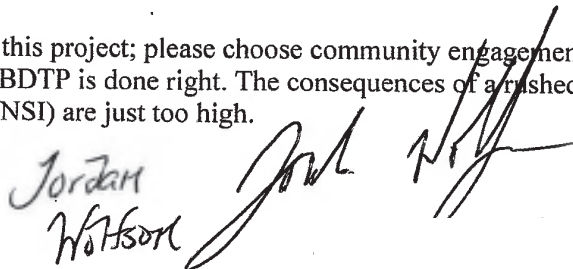 this project; please choose community engagemen
BDTP is done right. The consequences of a rushed
NSI) are just too high.
Jordan
Wolfson